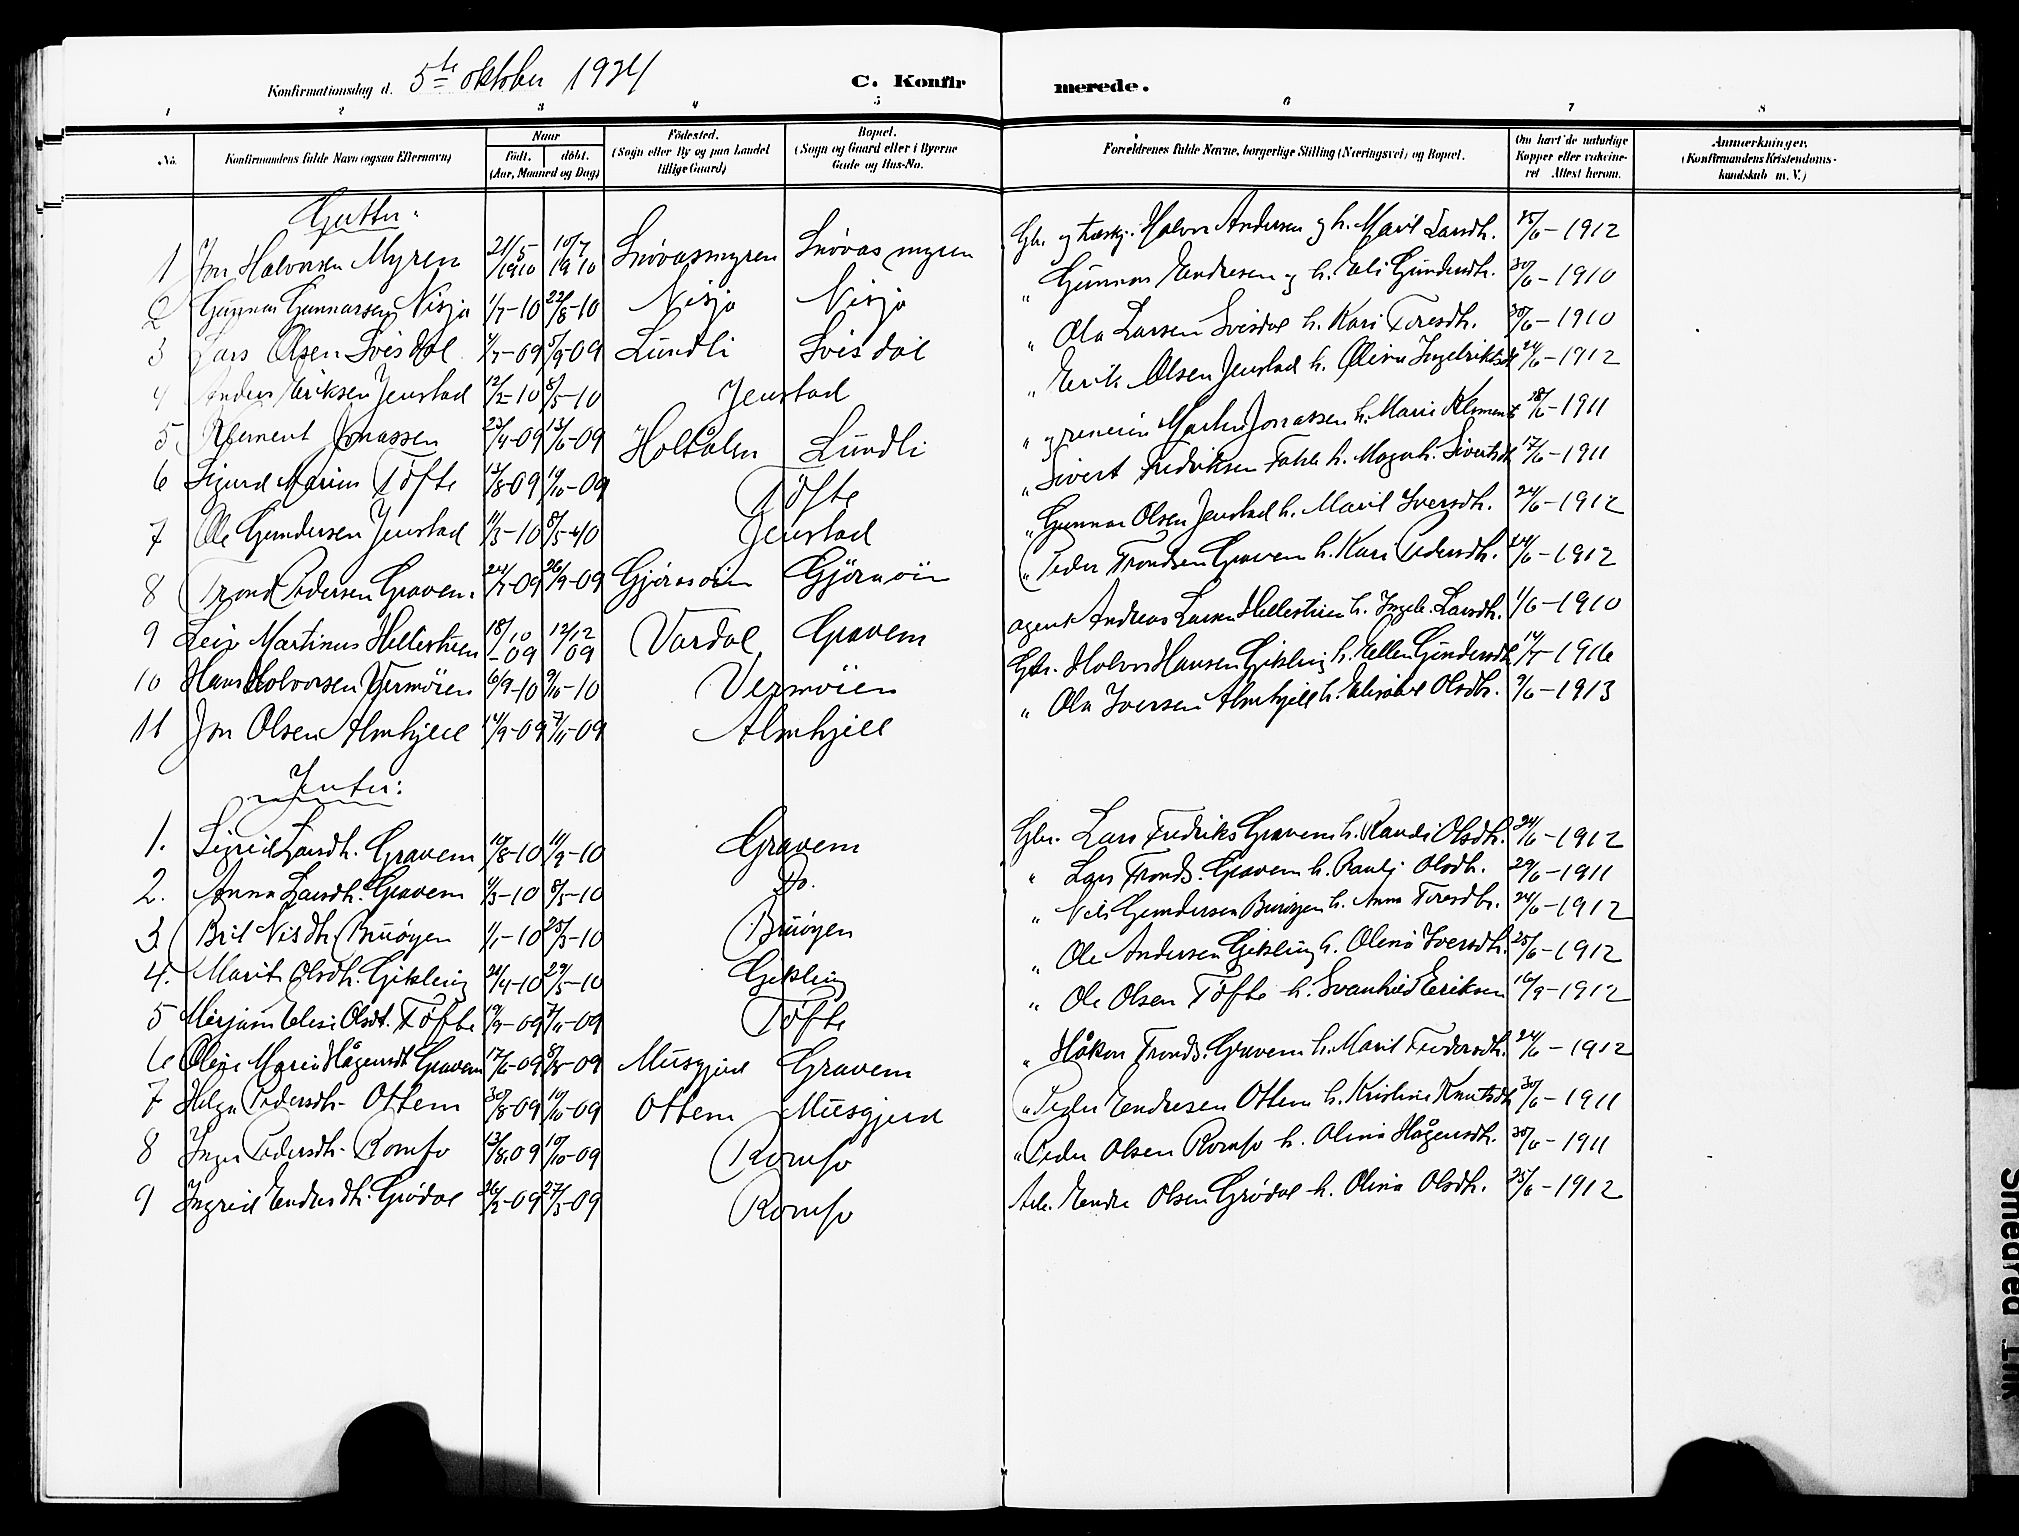 Konfirmationsdag d. 5te oktober 1924 C. Konfirmerede.
1 2 3 4 5 6 7 8
No. Konfirmandens fulde Navn (ogsaa Efternavn) Naar födt. döbt. (Aar, Maaned og Dag) Födested. (Sogn eller By og paa Landet tillige Gaard) Bopæl. (Sogn og Gaard eller i Byerne Gade og Hus-No. Forældrenes fulde Navne, borgerlige Stilling (Næringsvei) og Bopæl. Om havt de naturlige Kopper eller vakcineret Attest herom. Anmærkninger. (Konfirmandens Kristendomskundskab m. V.)
Gutter:
1 Jon Halvorsen Myren 21/5 1910 10/7 1910 Snøvasmyren Snøvasmyren Gbr. og træskj. Halvor Andersen og h. Marit Larsdh. 25/6-1912
2 Gunnar Gunnarsen Nisja 1/7-10 22/8-10 Nisja Nisja " Gunnar Endresen og h. Eli Gundersdh. 30/6-1910
3 Lars Olsen Svisdal 7/7-09 5/9-09 Lundli Svisdal " Ola Larsen Svisdal h. Kari Toresdh. 30/6-1910
4 Anders Eriksen Jenstad 12/2-10 8/5-10 Jenstad " Erik Olsen Jenstad h. Olina Ingebriktsdt 24/6-1912
5 Klement Jonassen 23/4-09 13/6-09 Holtålen Lundli " og Martin Jonassen h. Marie Klements 28/6-1911
6 Sigurd Marius Tøfte 13/8-09 10/10-09 Tøfte " Sivert Fredriksen Fahle h. Magnh. Sivertsdt 17/6-1911
7 Ole Gundersen Jenstad 11/3-10 8/5-10 Jenstad " Gunnar Olsen Jenstad h. Marit Iversdh. 24/6-1912
8 Trond Pedersen Gravem 24/7-09 26/9-09 Gjøraøin Gjøraøin " Peder Trondsen Gravem h. Kari Pedersdh. 24/6-1912
9 Leif Martinus Hellestuen 18/10-09 12/12 09 Vardal Gravem agent Andreas Larsen Hellestuen h. Ingeb. Larsdh. 1/6-1910
10 Hans Halvorsen Vermøien 6/9-10 9/10-10 Vermøien Gbr. Halvor Hansen Gikling h. Ellen Gundersdh 14/7-1916
11 Jon Olsen Almhjell 14/9-09 7/11-09 Almhjell " Ola Iversen Almhjell h. Elisabet Olsdh. 9/6-1913
Jenter:
1. Sigrid Larsdh. Gravem 10/8-10 11/9-10 Gravem Gbr. Lars Fredriks. Gravem h. Randi Olsdh. 24/6-1912
2. Anna Larsdh. Gravem 4/3-10 8/5-10 Do. " Lars Tronds. Gravem h. Rauli Olsdh. 29/6-1911
3. Brit Nilsdh. Bruøyen 1/1-10 25/3-10 Bruøyen " Nils Gundersen Bruøyen h. Anna Toresdh. 24/6-1912
4. Marit Olsdh. Gikling 21/4-10 29/5-10 Gikling " Ole Andersen Gikling h. Olina Iversdh. 25/6-1912
5 Mirjam Elise Olsdt. Tøfte 19/9-09 7/11-09 Tøfte " Ole Olsen Tøfte h. Svanhild Eriksen 16/9-1912
6 Oline Marie Hågensdt Gravem 17/6-09 8/8-09 Musgjerd Gravem " Håkon Tronds. Gravem h. Marit Fredersdh. 24/6-1912
7 Helga Pedersdh. Ottem 30/8-09 10/10-09 Ottem Musgjerd " Peder Endresen Ottem h. Kristine Knutsdh 30/6-1911
8 Inga Pedersdh. Romfo 13/8-09 10/10-09 Romfo " Peder Olsen Romfo h. Olina Hågensdh. 30/6-1911
9 Ingrid Endresdh. Grødal 26/2-09 27/3-09 Romfo Arb. Endre Olsen Grødal h. Olina Olsdh. 25/6-1912